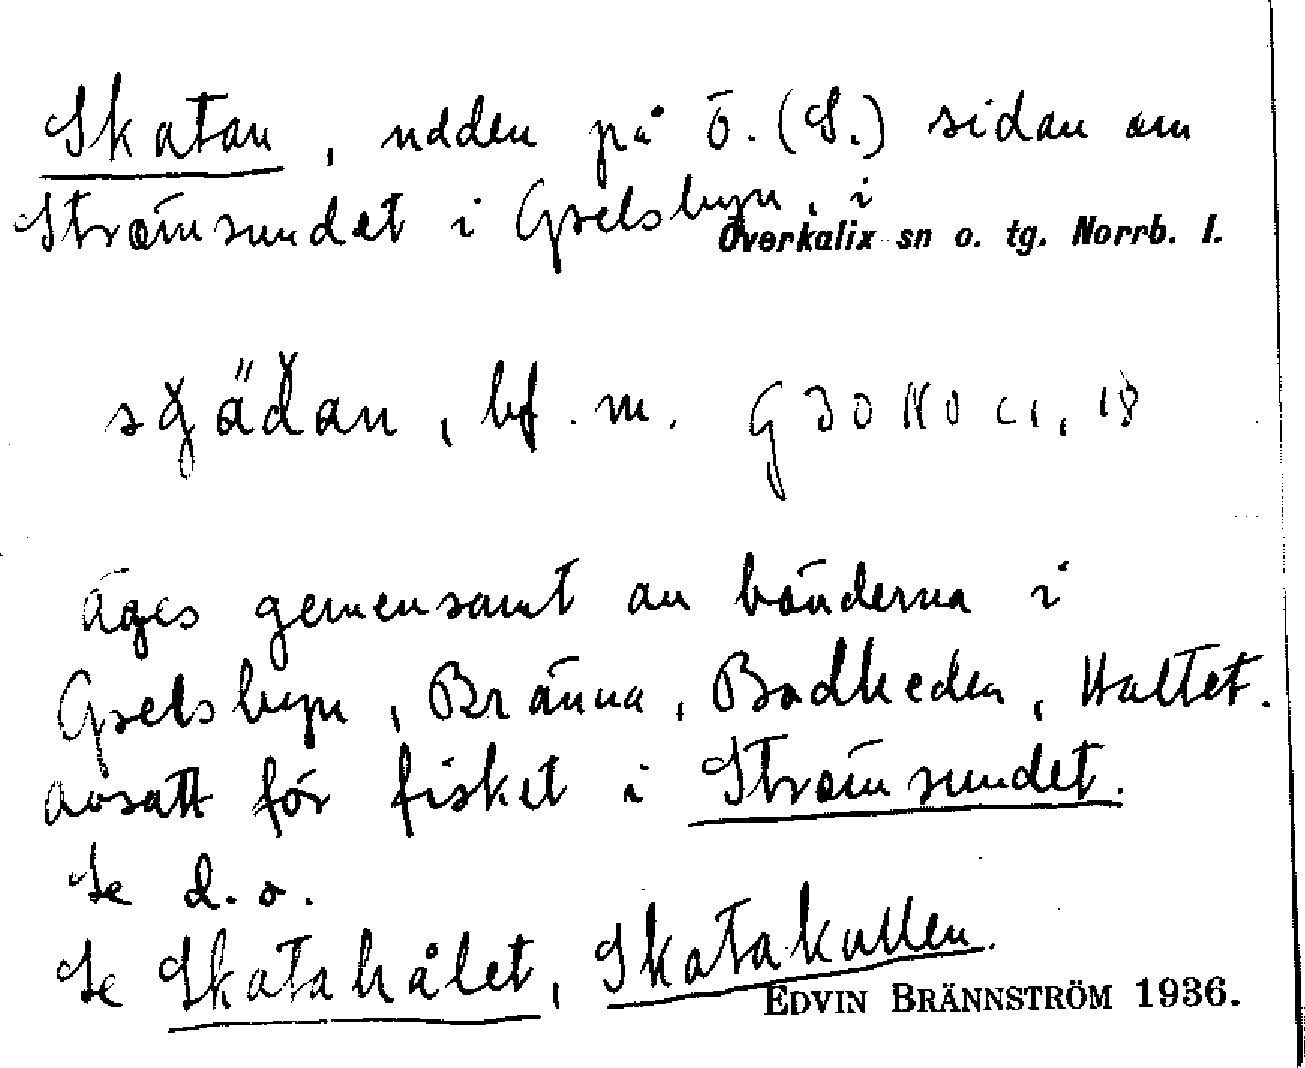 Skatan, udden på ö. (S.) sidan om
Strömsundet i Grelsbyn, i
Överkalix sn o. tg. Norrb. l.
bf. m.
Äges gemensamt av bönderna i
Grelsbyn, Bränna, Bodheden, Hallet.
avsatt för fisket i Strömsundet.
Se d. o.
Se Skatahålet, Skatakullen.
EDVIN BRÄNNSTRÖM 1936.